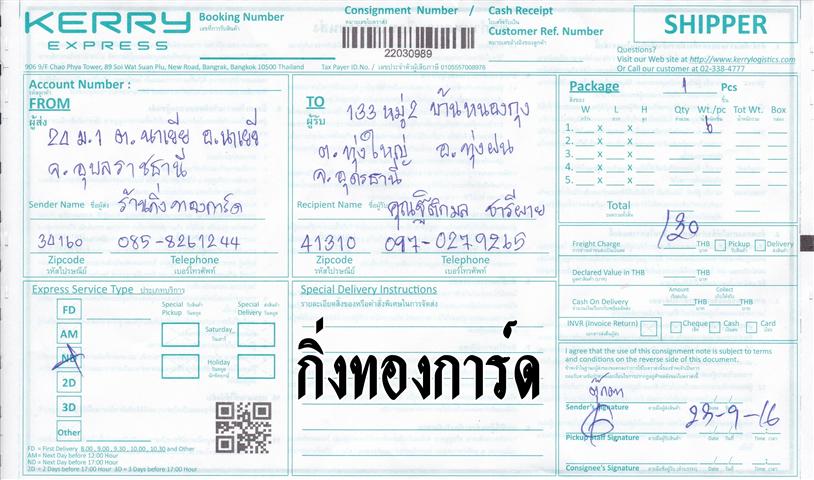 KERRY
EXPRESS
Booking Number
เลขที่การรับสินค้า
Consignment Number /
หมายเลขใบตราส่ง
22030989
Cash Receipt
ใบเสร็จรับเงิน
Customer Ref. Number
หมายเลขอ้างอิงของลูกค้า
SHIPPER
Questions?
Visit our Web site at http://www.kerrylogistics.com
Or Call our customer at 02-338-4777
906 9/F Chao Phya Tower, 89 Soi Wat Suan Plu, New Road, Bangrak, Bangkok 10500 Thailand
Tax Payer ID.No. / เลขประจำตัวผู้เสียภาษี 0105557008976
Account Number :
FROM
ผู้ส่ง
24 ม.1 ต.นาเยีย อ.นาเยีย
จ.อุบลราชธานี
Sender Name ชื่อผู้ส่ง ร้านกิ่งทองการ์ด
34160 085-8261244
Zipcode Telephone
รหัสไปรษณีย์ เบอร์โทรศัพท์
TO
ผู้รับ
133 หมู่2 บ้านหนองกุง
ต.ทุ่งใหญ่ อ.ทุ่งฝน
จ.อุดรธานี
Recipient Name ชื่อผู้รับ
41310 097-0279265
Zipcode Telephone
รหัสไปรษณีย์ เบอร์โทรศัพท์
Package 1 Pcs
W L H Qty Wt./pc Tot Wt. Box
1. X X 6
2. X X
3. X X
4. X X
5. X X
Total
Freight Charge 130 THB Pickup Delivery
Declared Value in THB THB
Amount Collect
Cash On Delivery THB THB
INVR (Invoice Return) Cheque Cash Card
Express Service Type ประเภทบริการ
Special Pickup
Special Delivery
FD
AM
Saturday
วันเสาร์
ND
Holiday
2D
3D
Other
FD = First Delivery 8.00 , 9.00 , 9.30 , 10.00 , 10.30 and Other
AM= Next Day before 12:00 Hour
ND = Next Day before 17:00 Hour
2D = 2 Days before 17:00 Hour 3D = 3 Days before 17:00 Hour
Special Delivery Instructions
รายละเอียดสิ่งของหรือคำสั่งพิเศษในการจัดส่ง
กิ่งทองการ์ด
I agree that the use of this consignment note is subject to terms
and conditions on the reverse side of this document.
Sender's Signature
23-9-16
Pickup Staff Signature Date วันที่ Time เวลา
Consignee's Signature Date วันที่ Time เวลา